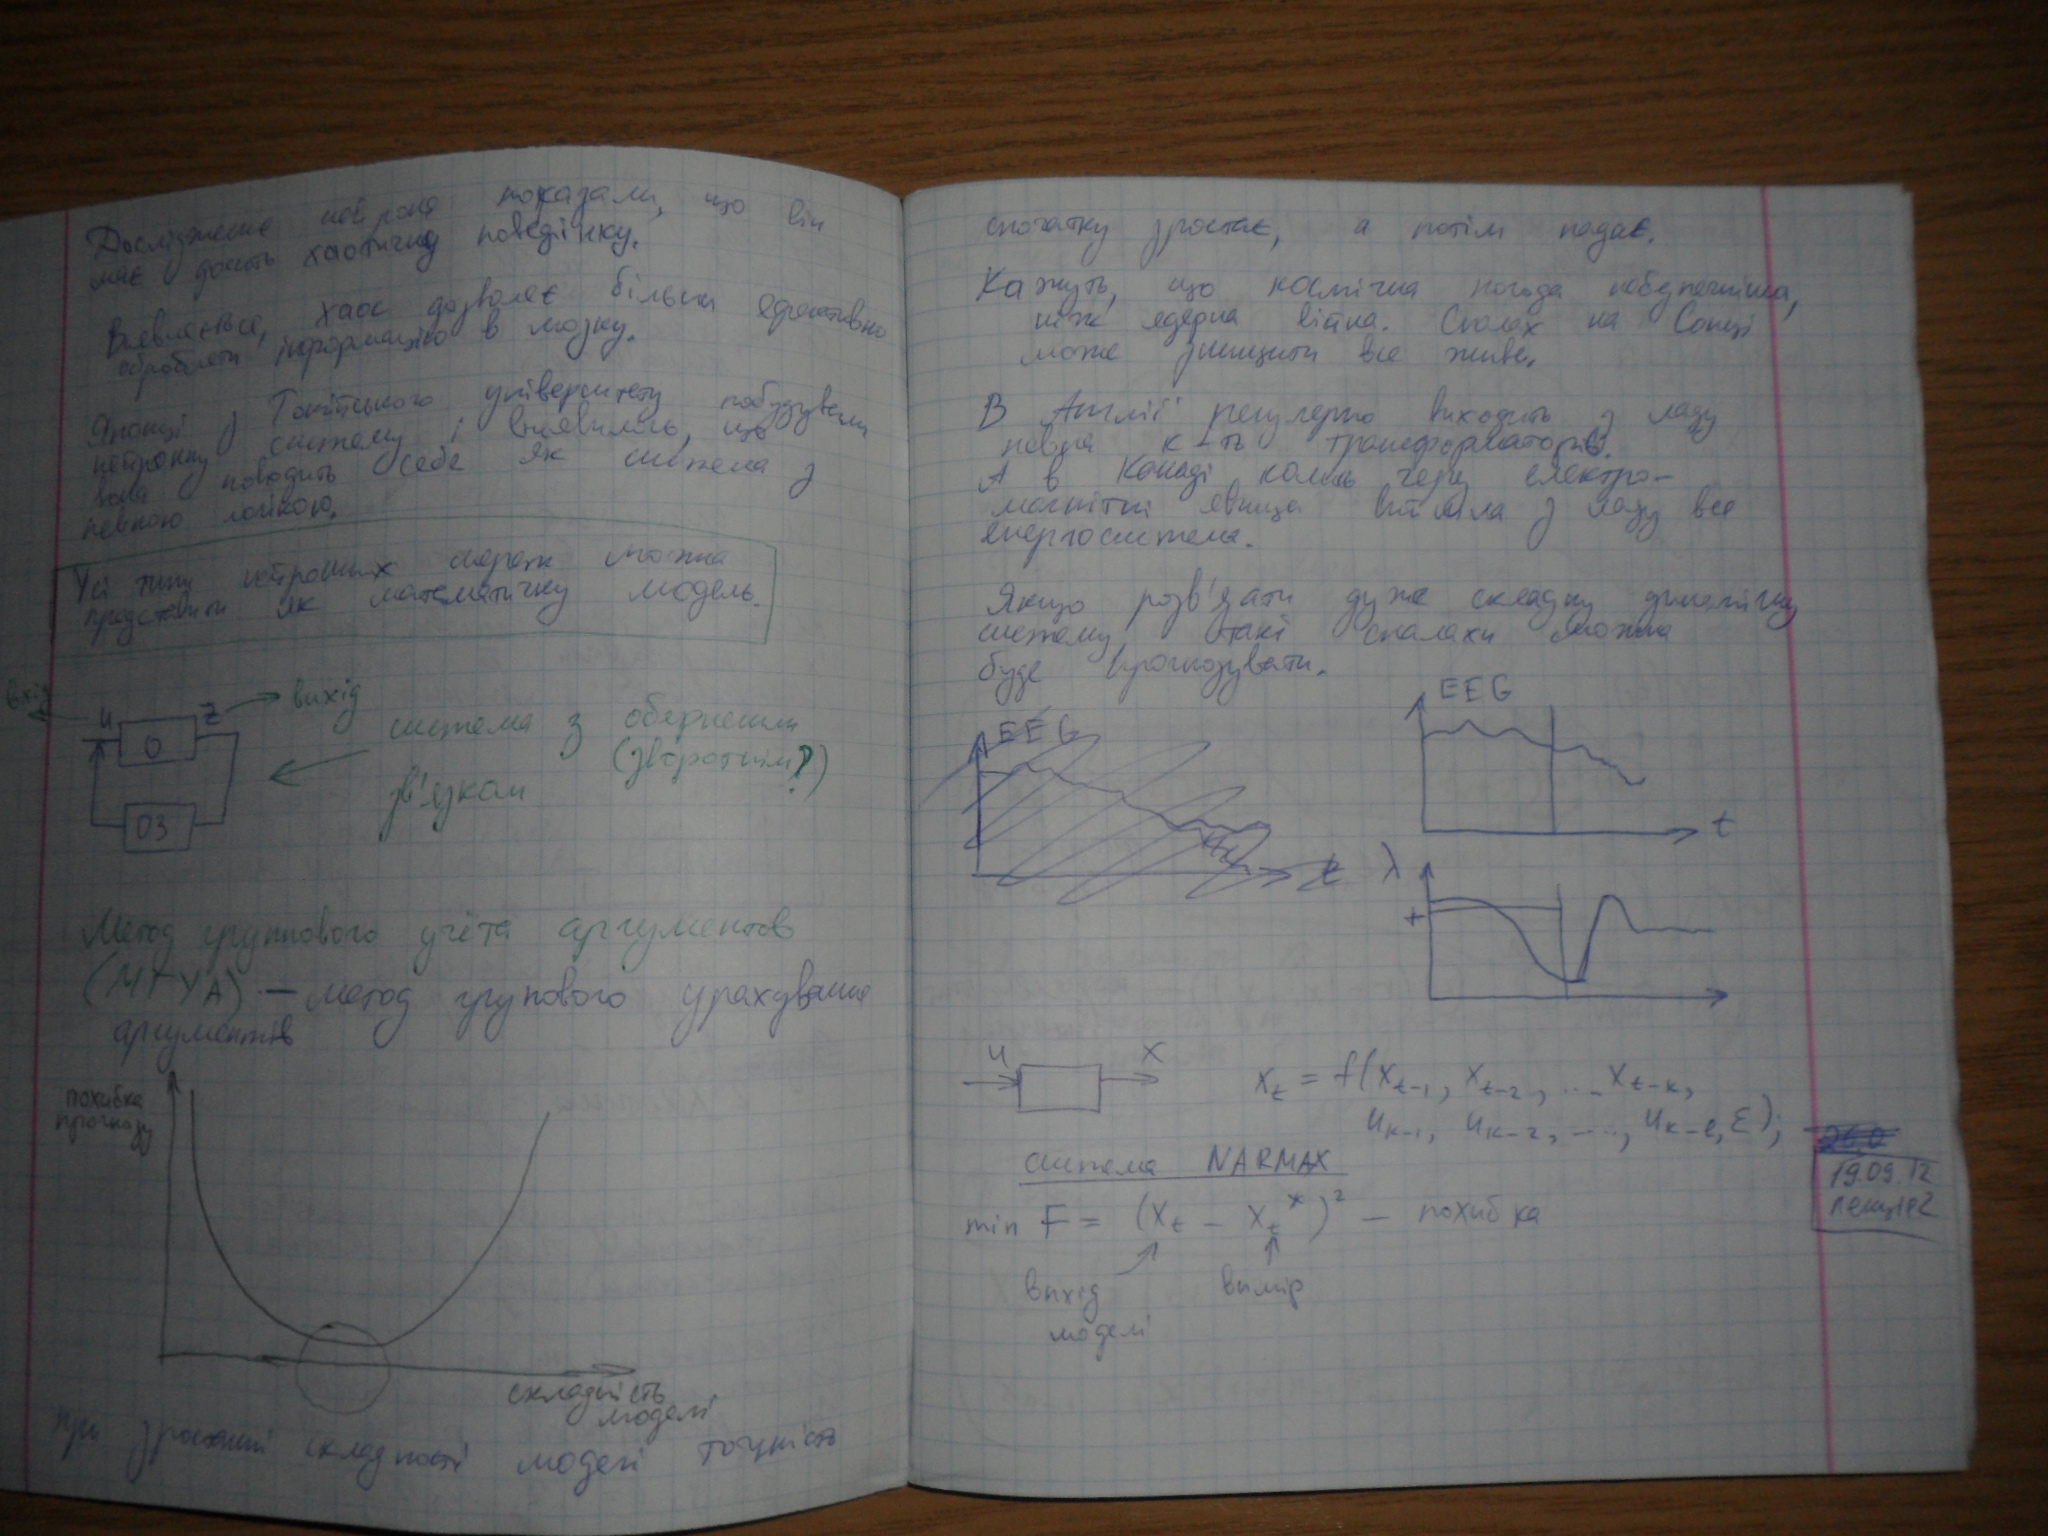 Дослідження нейрона показали, що він
має досить хаотичну поведінку.
Виявляється, хаос дозволяє більш ефективно
обробляти інформацію в мозку.
Японці з Токійського університету побудували
нейронну систему і виявилось, що
вона поводить себе як система з
певною логікою.
Усі типи нейронних мереж можна
представити як математичну модель.
вхід
u
z
вихід
О
ОЗ
система з оберненим
(зворотнім?)
зв'язком
Метод группового учёта аргументов
(МГУА) — метод групового урахування
аргументів
похибка
прогнозу
складність
моделі
при зростанні складності моделі точність
спочатку зростає, а потім падає.
Кажуть, що космічна погода небезпечніша,
ніж ядерна війна. Спалах на Сонці
може знищити все живе.
В Англії регулярно виходить з ладу
певна к-ть трансформаторів.
А в Канаді колись через електро-
магнітні явища вийшла з ладу вся
енергосистема.
Якщо розв'язати дуже складну динамічну
систему такі спалахи можна
буде прогнозувати.
EEG
t
EEG
t
λ
+
u
x
x_t = f(x_{t-1}, x_{t-2}, ... x_{t-k},
u_{k-1}, u_{k-2}, ...., u_{k-l}, ε);
19.09.12
лекція2
система NARMAX
min F = (x_t - x_t^*)² — похибка
вихід
моделі
вимір